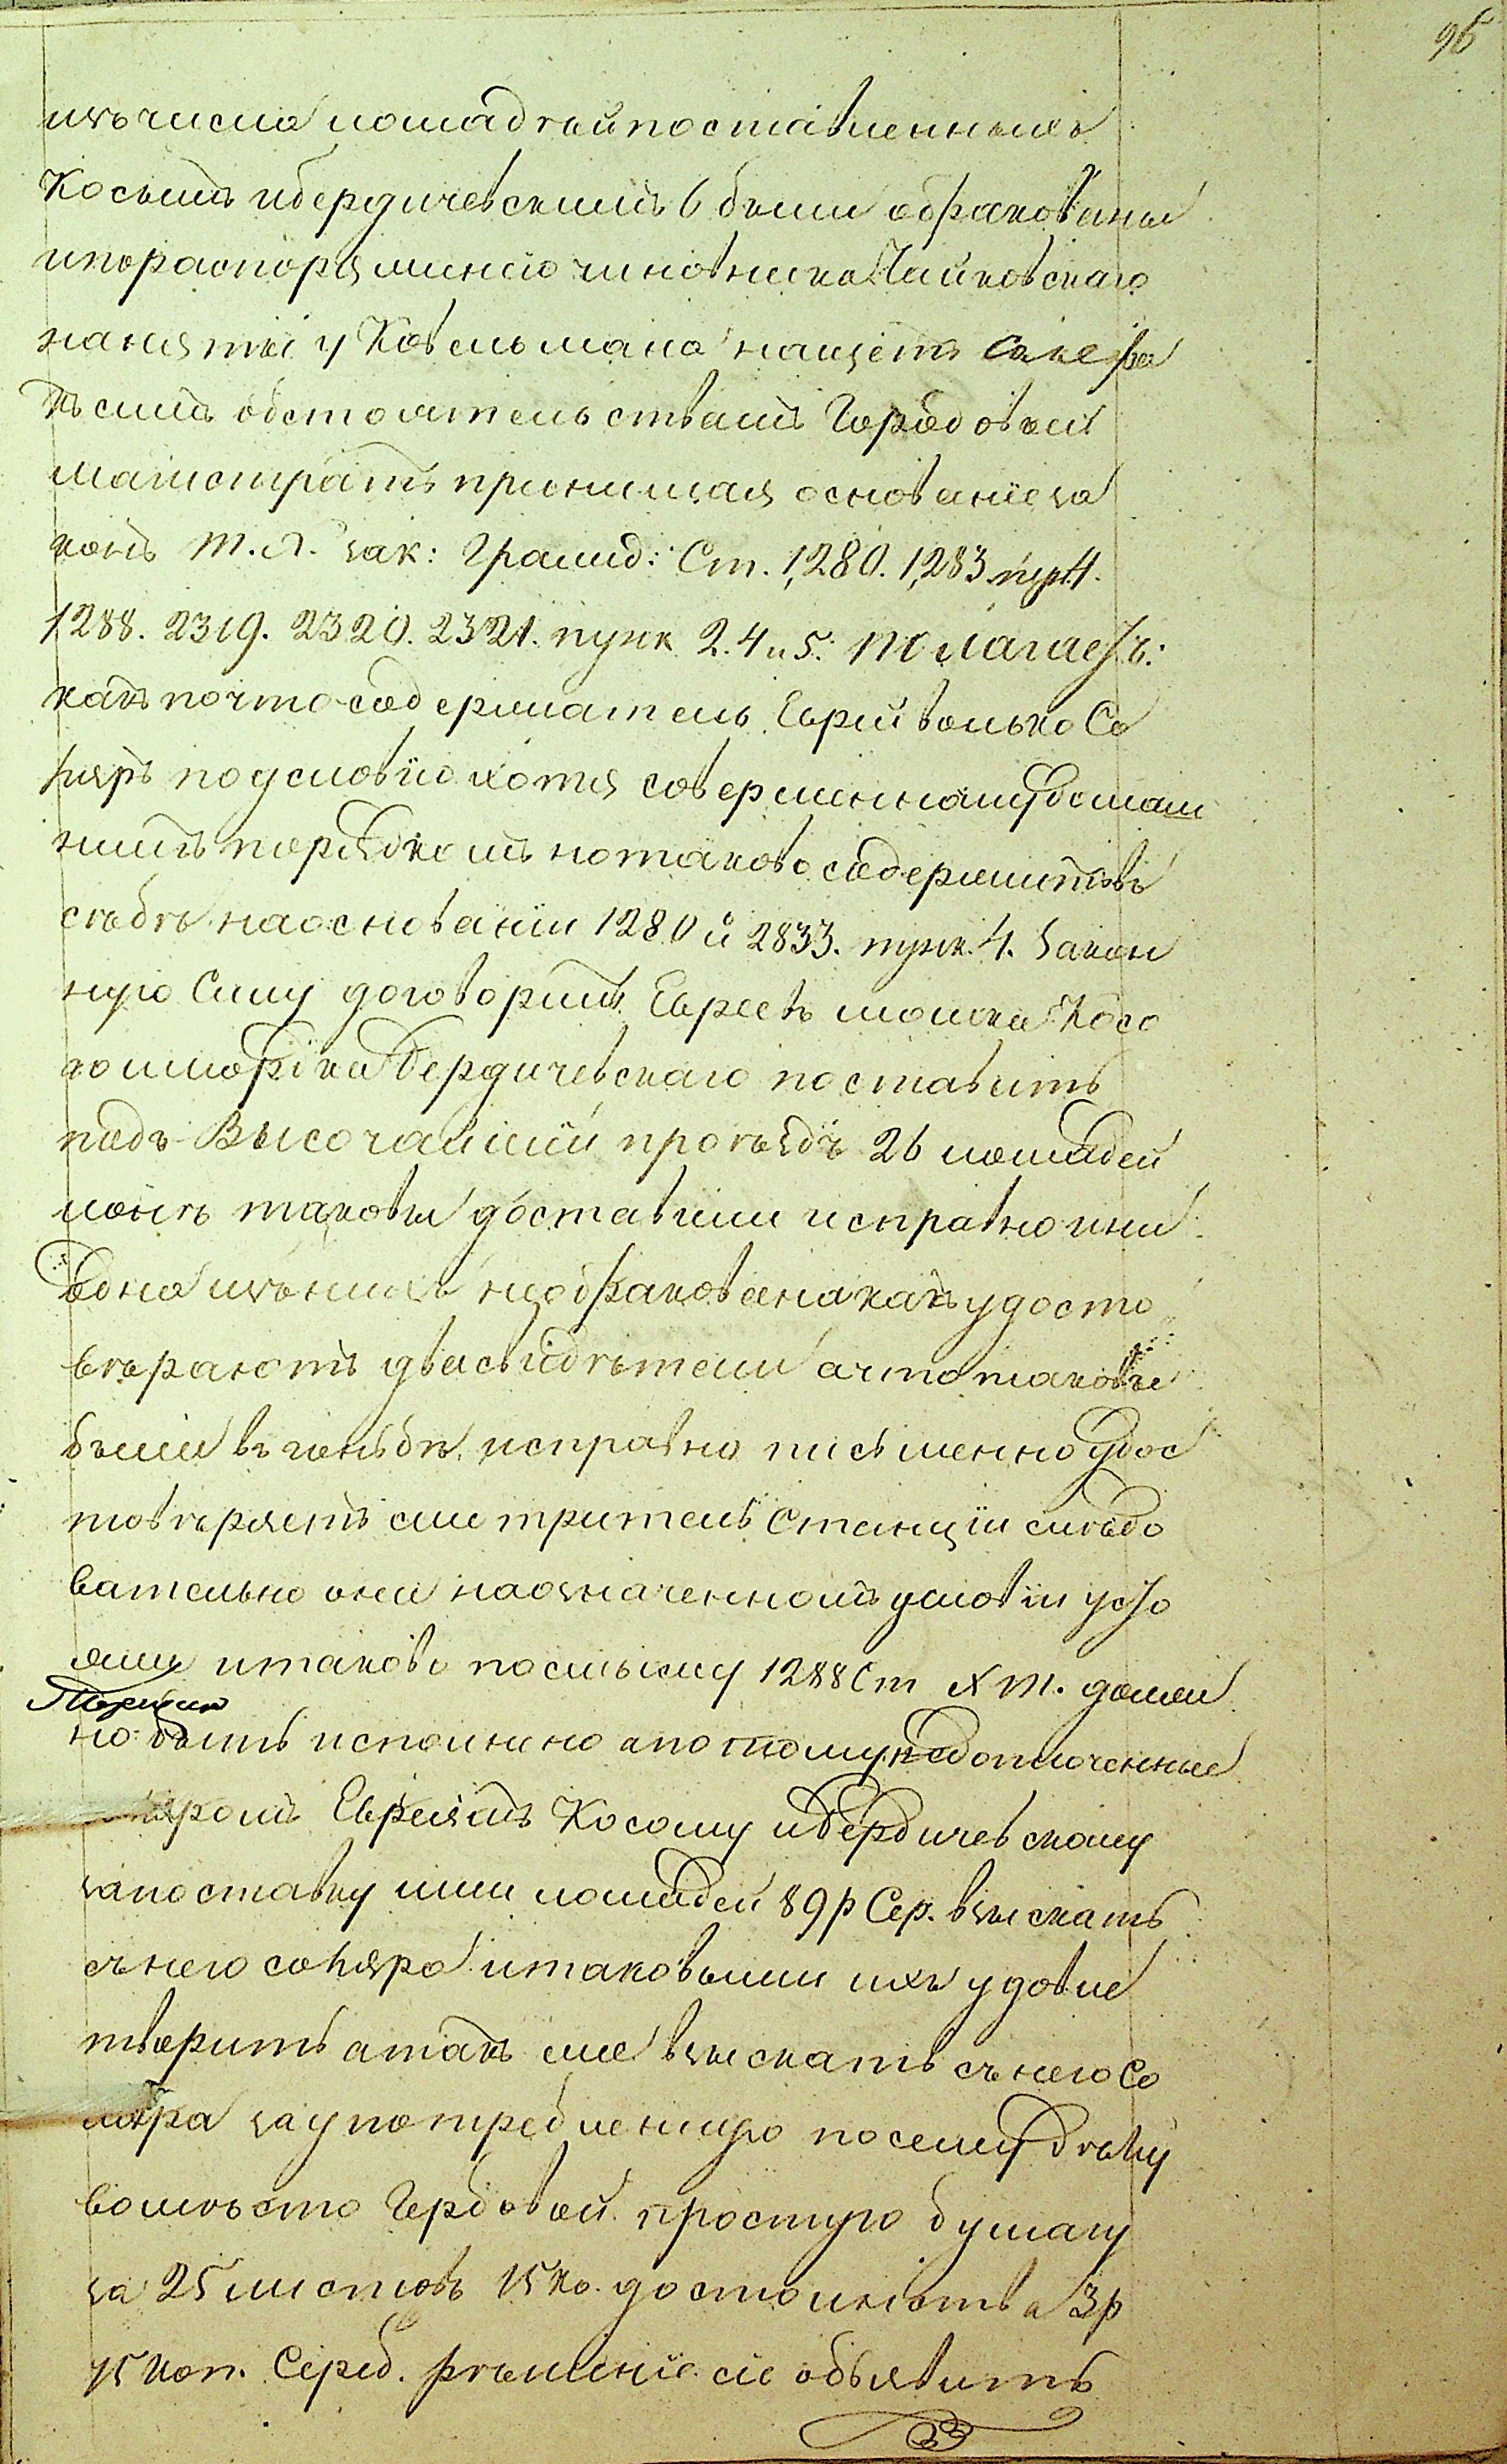 96
изъ числа лошадѣй поставленныхъ
Косымъ и бердичевскимъ 6 были обракованы
и по распоряжѣнію чиновника Чайковскаго
нанятыи у Ковельмана нащетъ
къ симъ обстоятельствамъ Городовый
магистратъ принимая основаніе за
конъ Т. Х. Зак: Гражд: Ст. 1,280. 1,283 пун. 4.
1288. 2319. 2320. 2321. пунк 2. 4 и 5. полагаетъ:
какъ почто-содержатель Еврей волько Со
по условію хотя совершенному домаш
нимъ порядкомъ но таково содержитъ въ
сѣбѣ на основаніи 1280 и 2833. пунк. 4. Закон
ную Силу договоритъ Евреевъ мошка Косо
го и Бердичевскаго поставить
подъ Высочайшій проѣздъ 26 лошадей
таковы доставили исправно и ни
одна изъ нихъ не обракована какъ удосто
вѣраютъ два свидѣтели а что таковые
были въ гоньбѣ исправно письменно удос
товѣряетъ смотритель Станціи слѣдо
вательно они на означенномъ условіи усто
яли и таково по смыслу 1288 Ст Х Т. должен
но быть исполнено а по тому недоплоченные
Евреямъ Косому и Бердичевскому
за поставку ими лошадей 89 р Сер. взыскать
съ него и таковыми ихъ удовле
творить а такъ же взыскать съ него Со
за употребленную по сему дѣлу
вомѣсто Гербовой простую бумагу
за 25 листовъ 15 ко. достоинства 3 р
75 коп. Сереб. рѣшеніе сіе объявить